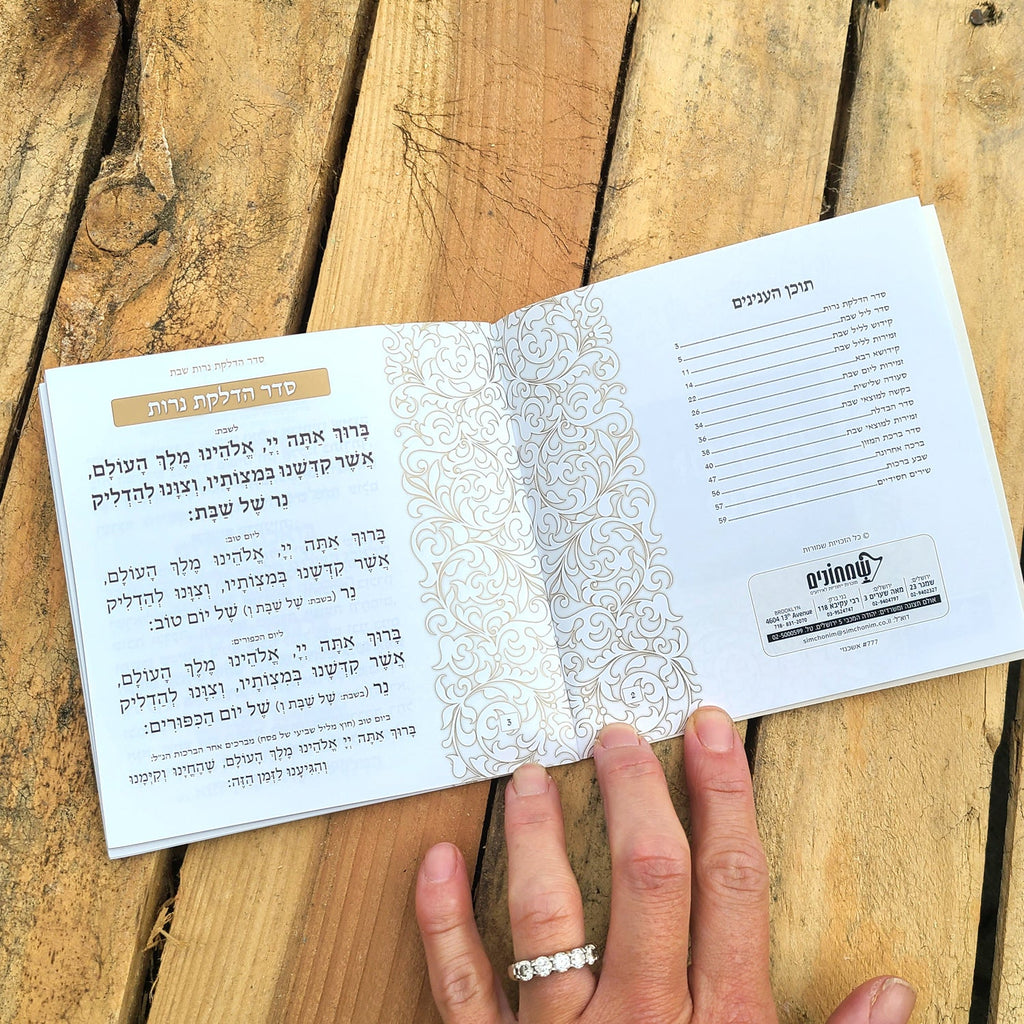 תוכן הענינים
סדר הדלקת נרות 3
סדר ליל שבת 5
קידוש לליל שבת 11
זמירות לליל שבת 14
קידושא רבא 22
זמירות ליום שבת 26
סעודה שלישית 34
בקשה למוצאי שבת 36
סדר הבדלה 38
זמירות למוצאי שבת 40
סדר ברכת המזון 47
ברכה אחרונה 56
שבע ברכות 57
שירים חסידיים 59
© כל הזכויות שמורות
שמחונים
מזכרות ייחודיות לאירועים
ירושלים: שמגר 23 02-9402327
ירושלים: מאה שערים 3 02-9404797
בני ברק: רבי עקיבא 118 03-9524747
BROOKLYN 4604 13th Avenue 718-831-2070
אולם תצוגה ומשרדים: יהודה המכבי 5 ירושלים. טל. 02-5000599
דוא"ל: simchonim@simchonim.co.il
#777 אשכנזי
2
סדר הדלקת נרות שבת
סדר הדלקת נרות
לשבת:
בָּרוּךְ אַתָּה יְיָ, אֱלֹהֵינוּ מֶלֶךְ הָעוֹלָם,
אֲשֶׁר קִדְּשָׁנוּ בְּמִצְוֹתָיו, וְצִוָּנוּ לְהַדְלִיק
נֵר שֶׁל שַׁבָּת:
ליום טוב:
בָּרוּךְ אַתָּה יְיָ, אֱלֹהֵינוּ מֶלֶךְ הָעוֹלָם,
אֲשֶׁר קִדְּשָׁנוּ בְּמִצְוֹתָיו, וְצִוָּנוּ לְהַדְלִיק
נֵר (בשבת: שֶׁל שַׁבָּת וְ) שֶׁל יוֹם טוֹב:
ליום הכפורים:
בָּרוּךְ אַתָּה יְיָ, אֱלֹהֵינוּ מֶלֶךְ הָעוֹלָם,
אֲשֶׁר קִדְּשָׁנוּ בְּמִצְוֹתָיו, וְצִוָּנוּ לְהַדְלִיק
נֵר (בשבת: שֶׁל שַׁבָּת וְ) שֶׁל יוֹם הַכִּפּוּרִים:
ביום טוב (חוץ מליל שביעי של פסח) מברכים אחר הברכות הנ"ל:
בָּרוּךְ אַתָּה יְיָ אֱלֹהֵינוּ מֶלֶךְ הָעוֹלָם, שֶׁהֶחֱיָנוּ וְקִיְּמָנוּ
וְהִגִּיעָנוּ לַזְּמַן הַזֶּה:
3